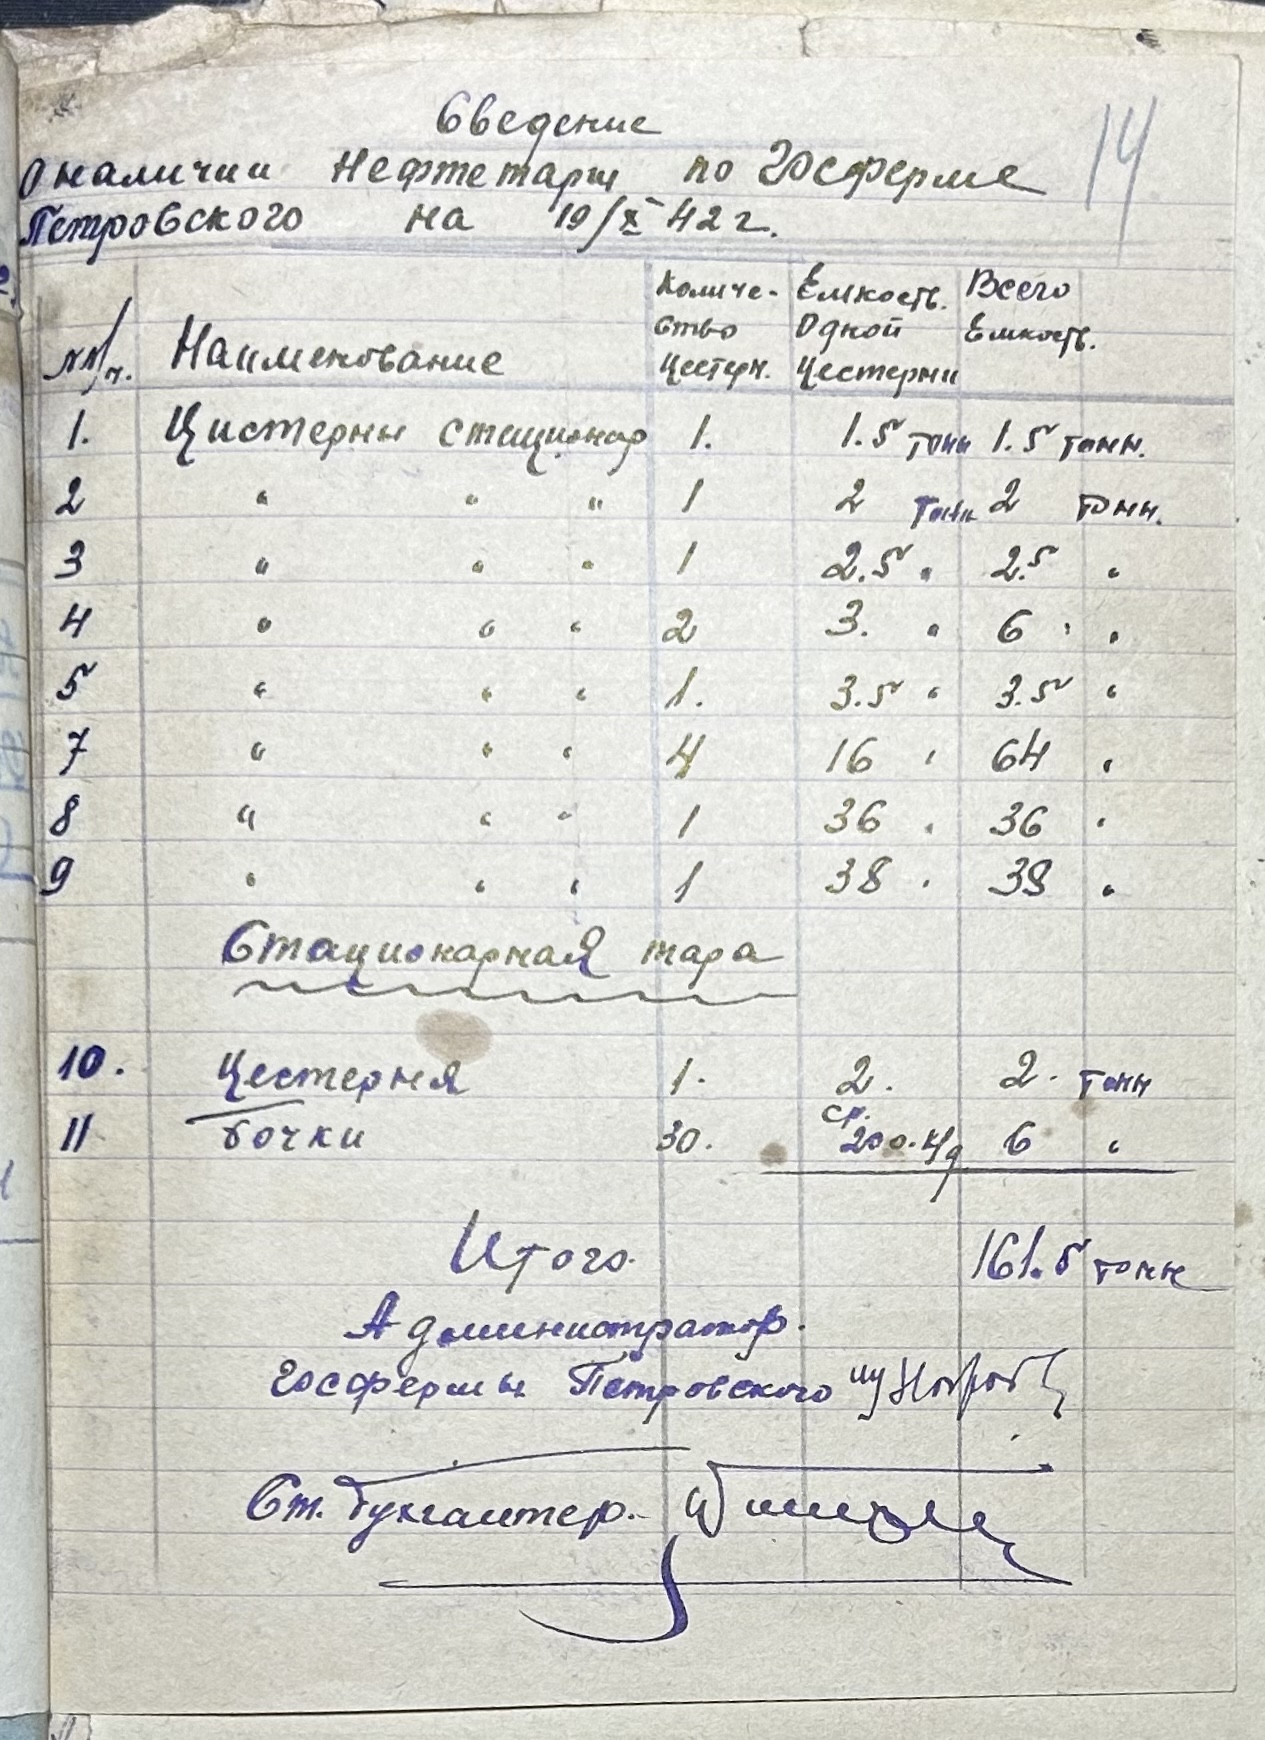 Сведение
14
О наличии Нефтетары по Госферме
Петровского на 19/X 42 г.
№№/п. Наименование Количество Цестерн. Емкость. Одной Цестерни Всего Емкость.
1. Цистерны стационар 1. 1.5 тонн 1.5 тонн.
2 " " " 1 2 тонн 2 тонн.
3 " " " 1 2.5 " 2.5 "
4 " " " 2 3. " 6 " "
5 " " " 1. 3.5 " 3.5 "
7 " " " 4 16 " 64 "
8 " " " 1 36 " 36 "
9 " " " 1 38 " 38 "
Стационарная тара
10. Цестерня 1. 2. 2. тонн
11 Бочки 30. ср. 200. к/г 6 "
Итого. 161.5 тонн
Администратор.
Госфермы Петровского
Ст. Бухгалтер.